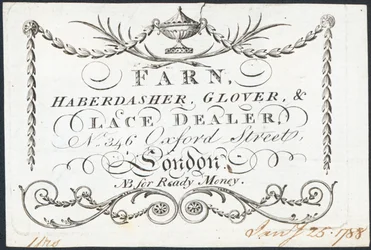 FARN,
HABERDASHER, GLOVER, &
LACE DEALER,
No. 346 Oxford Street,
London
NB. for Ready Money.
Jany. 25. 1788